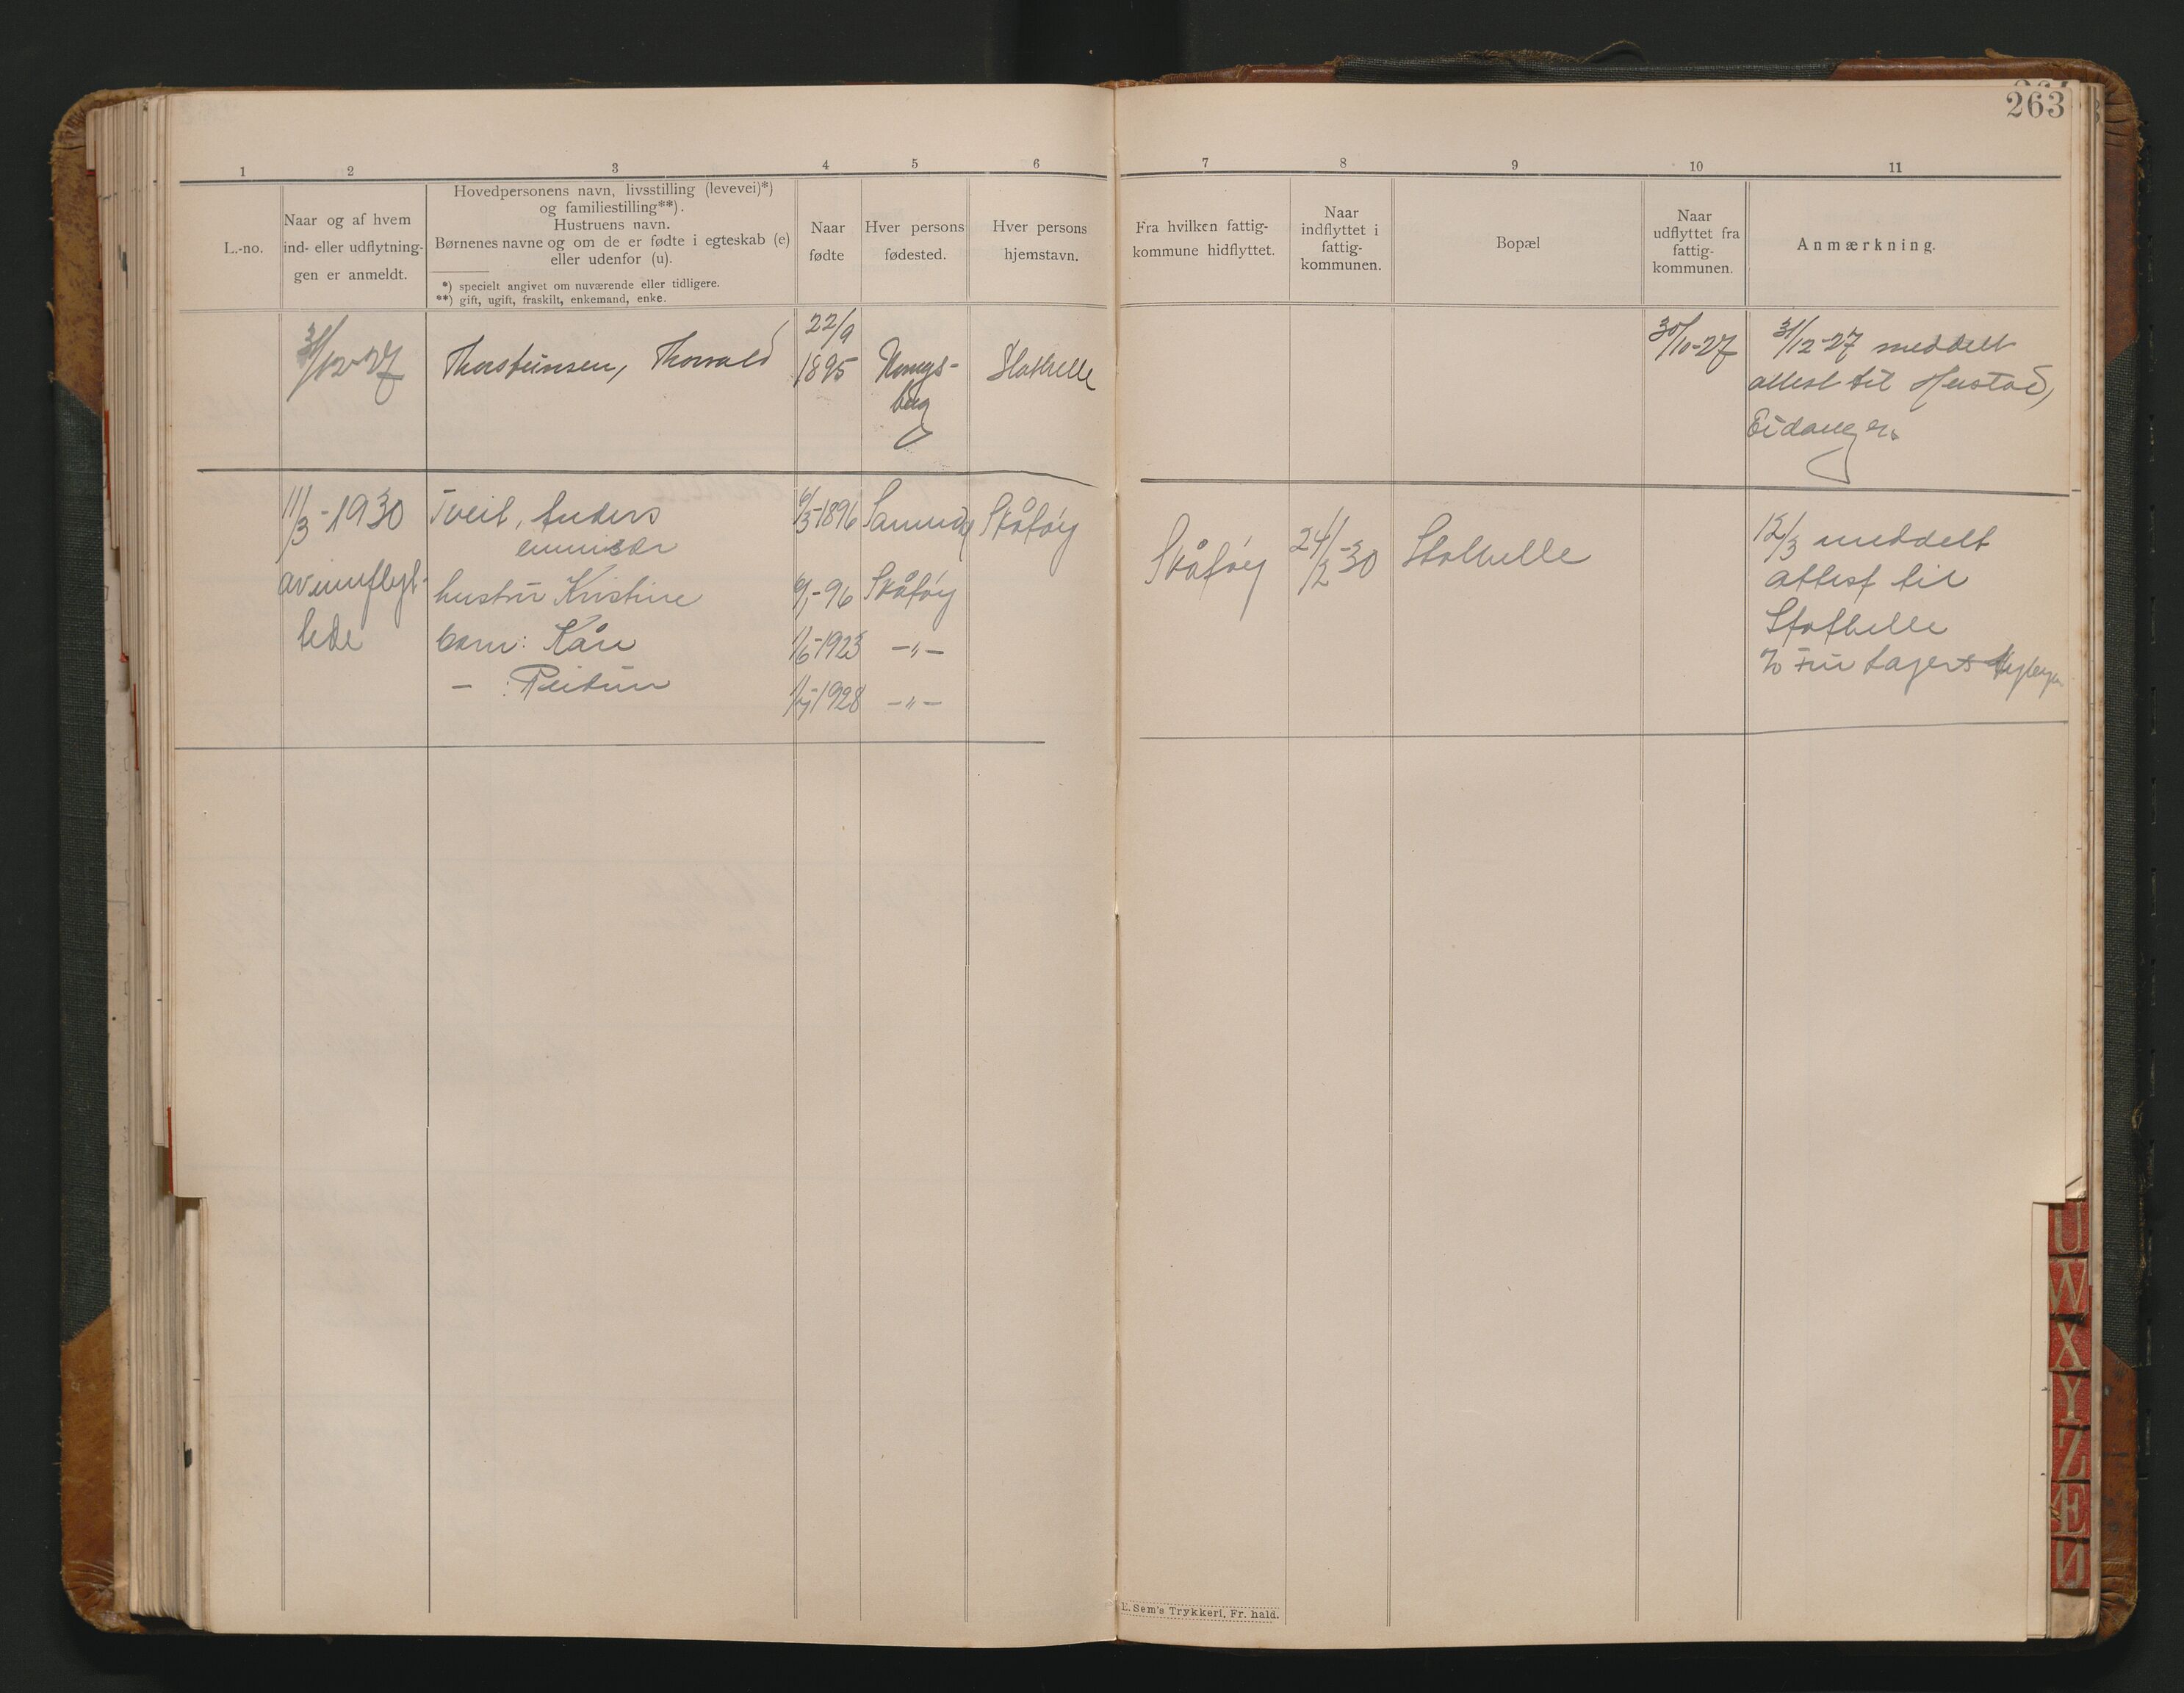 263
1 2 3 4 5 6 7 8 9 10 11
L.-no.
Naar og af hvem
ind- eller udflytnin-
gen er anmeldt.
Hovedpersonens navn, livsstilling (levevei)*)
og familiestilling**).
Hustruens navn.
Børnenes navne og om de er fødte i egteskab (e)
eller udenfor (u).
*) specielt angivet om nuværende eller tidligere.
**) gift, ugift, fraskilt, enkemand, enke.
Naar
fødte
Hver persons
fødested.
Hver persons
hjemstavn.
Fra hvilken fattig-
kommune hidflyttet.
Naar
indflyttet i
fattig-
kommunen.
Bopæl
Naar
udflyttet fra
fattig-
kommunen.
Anmærkning.
31/12-27
Thorsteinsen, Thorvald
22/9
1895
Kongs-
berg
Stathelle
30/10-27
31/12-27 meddelt
attest til Herstad,
Eidanger.
11/3-1930
av innflyt-
tede
Tveit, Anders
emmisær
hustru Kristine
barn: Kåre
— : Reidun
6/3-1896
-96
1/6-1923
1/7-1928
Sannidal
Skåtøy
—„—
—„—
Skåtøy
Skåtøy
24/2-30
Stathelle
12/3 meddelt
attest til
Stathelle
c/o Fru
E. Sem's Trykkeri, Fr. hald.
U
W
X
Y
Z
Æ